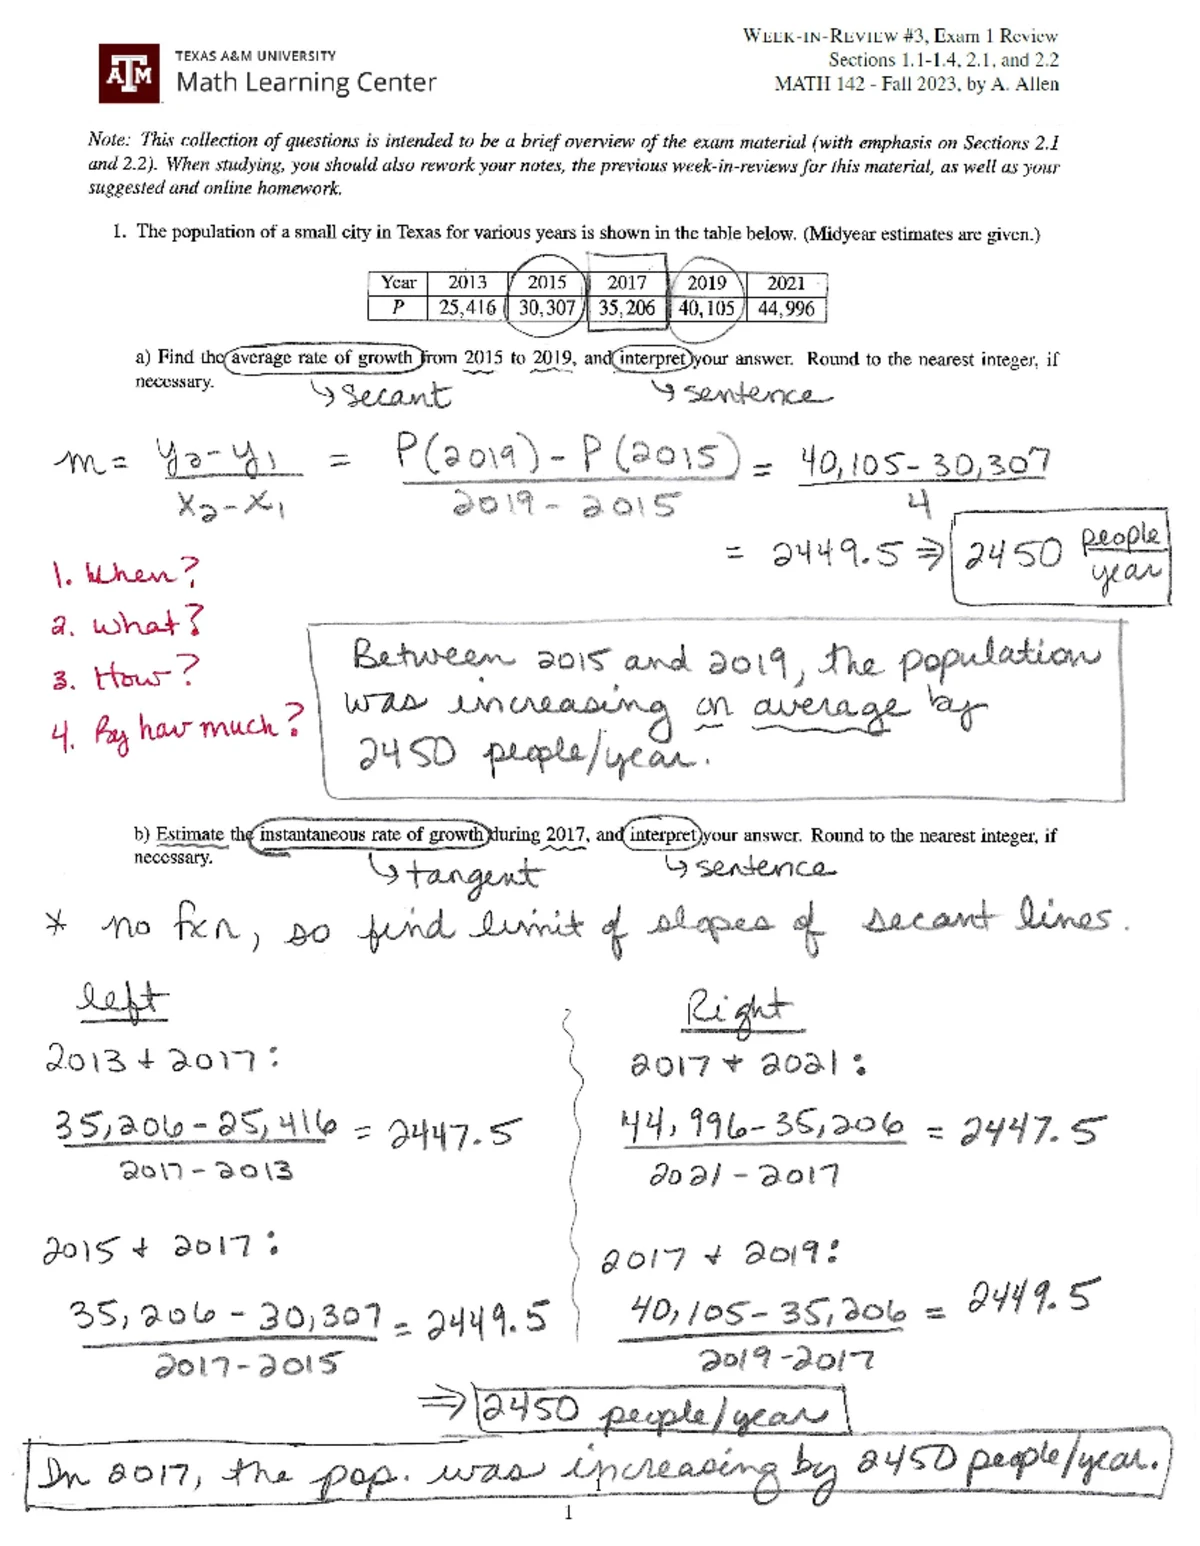 WEEK-IN-REVIEW #3, Exam 1 Review
TEXAS A&M UNIVERSITY
Sections 1.1-1.4, 2.1, and 2.2
ĀTM Math Learning Center
MATH 142 - Fall 2023, by A. Allen
Note: This collection of questions is intended to be a brief overview of the exam material (with emphasis on Sections 2.1
and 2.2). When studying, you should also rework your notes, the previous week-in-reviews for this material, as well as your
suggested and online homework.
1. The population of a small city in Texas for various years is shown in the table below. (Midyear estimates are given.)
Year 2013 2015 2017 2019 2021
P 25,416 30,307 35,206 40,105 44,996
a) Find the average rate of growth from 2015 to 2019, and interpret your answer. Round to the nearest integer, if
necessary.
↳ secant ↳ sentence
m = y2-y1 / x2-x1 = P(2019) - P(2015) / 2019 - 2015 = 40,105 - 30,307 / 4
= 2449.5 ⇒ 2450 people/year
1. When?
2. What?
3. How?
4. By how much?
Between 2015 and 2019, the population
was increasing on average by
2450 people/year.
b) Estimate the instantaneous rate of growth during 2017, and interpret your answer. Round to the nearest integer, if
necessary.
↳ tangent ↳ sentence
* no fxn, so find limit of slopes of secant lines.
left Right
2013 + 2017: 2017 + 2021:
35,206 - 25,416 / 2017 - 2013 = 2447.5 44,996 - 35,206 / 2021 - 2017 = 2447.5
2015 + 2017: 2017 + 2019:
35,206 - 30,307 / 2017 - 2015 = 2449.5 40,105 - 35,206 / 2019 - 2017 = 2449.5
⇒ 2450 people/year
In 2017, the pop. was increasing by 2450 people/year.
1